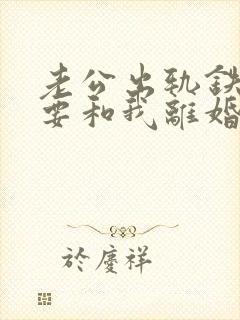 老公出轨鉄
要和我離婚
於慶祥